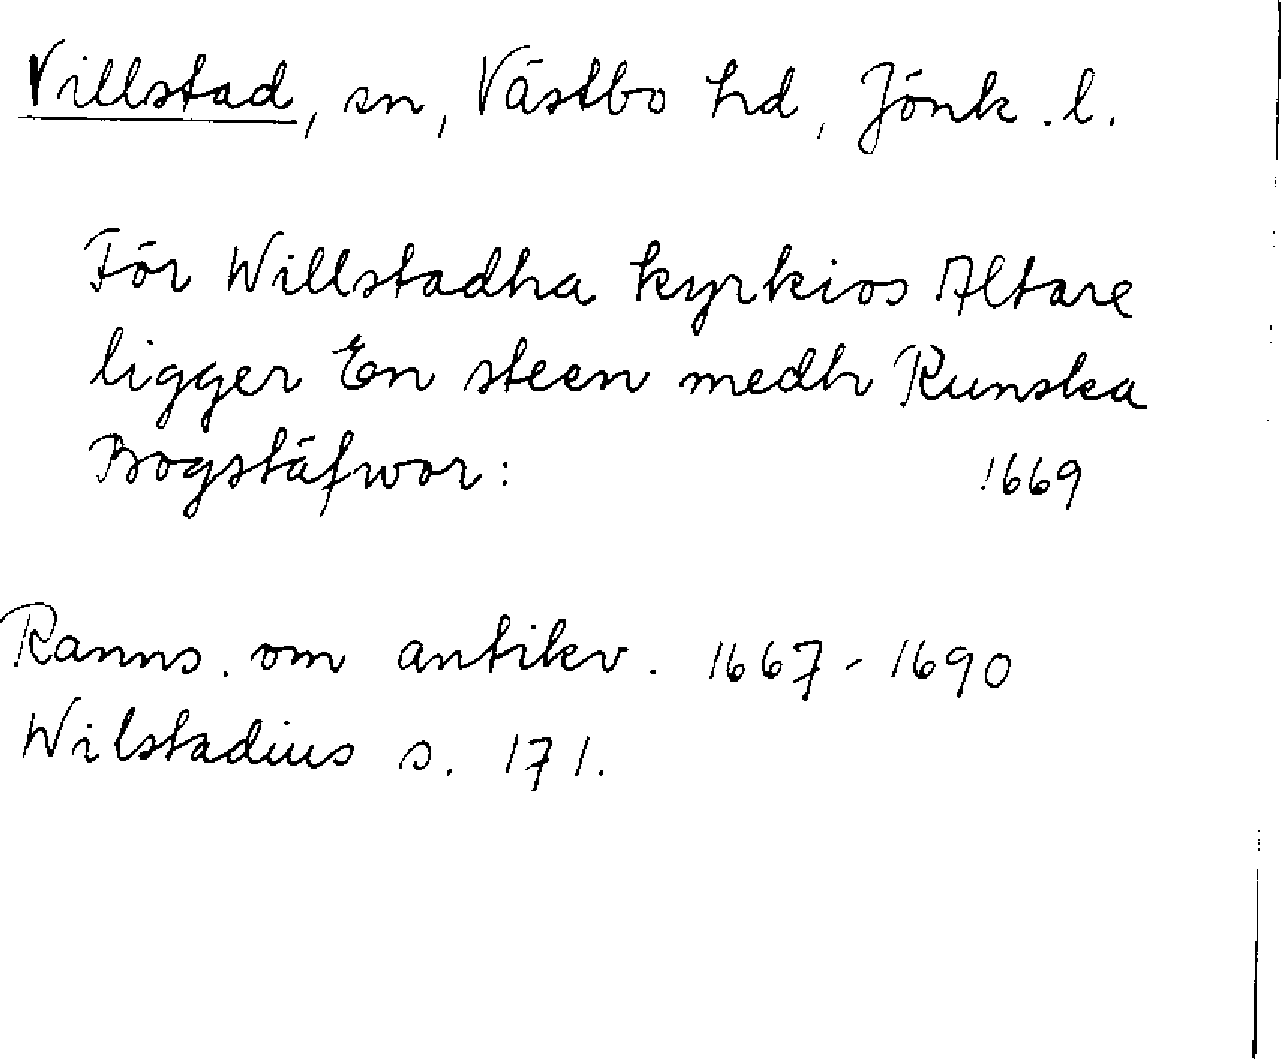 Villstad, sn, Västbo hd, Jönk. l.
För Willstadha kyrkios Altare
ligger En steen medh Runska
Bogstäfwor: 1669
Ranns. om antikv. 1667-1690
Wilstadius s. 171.